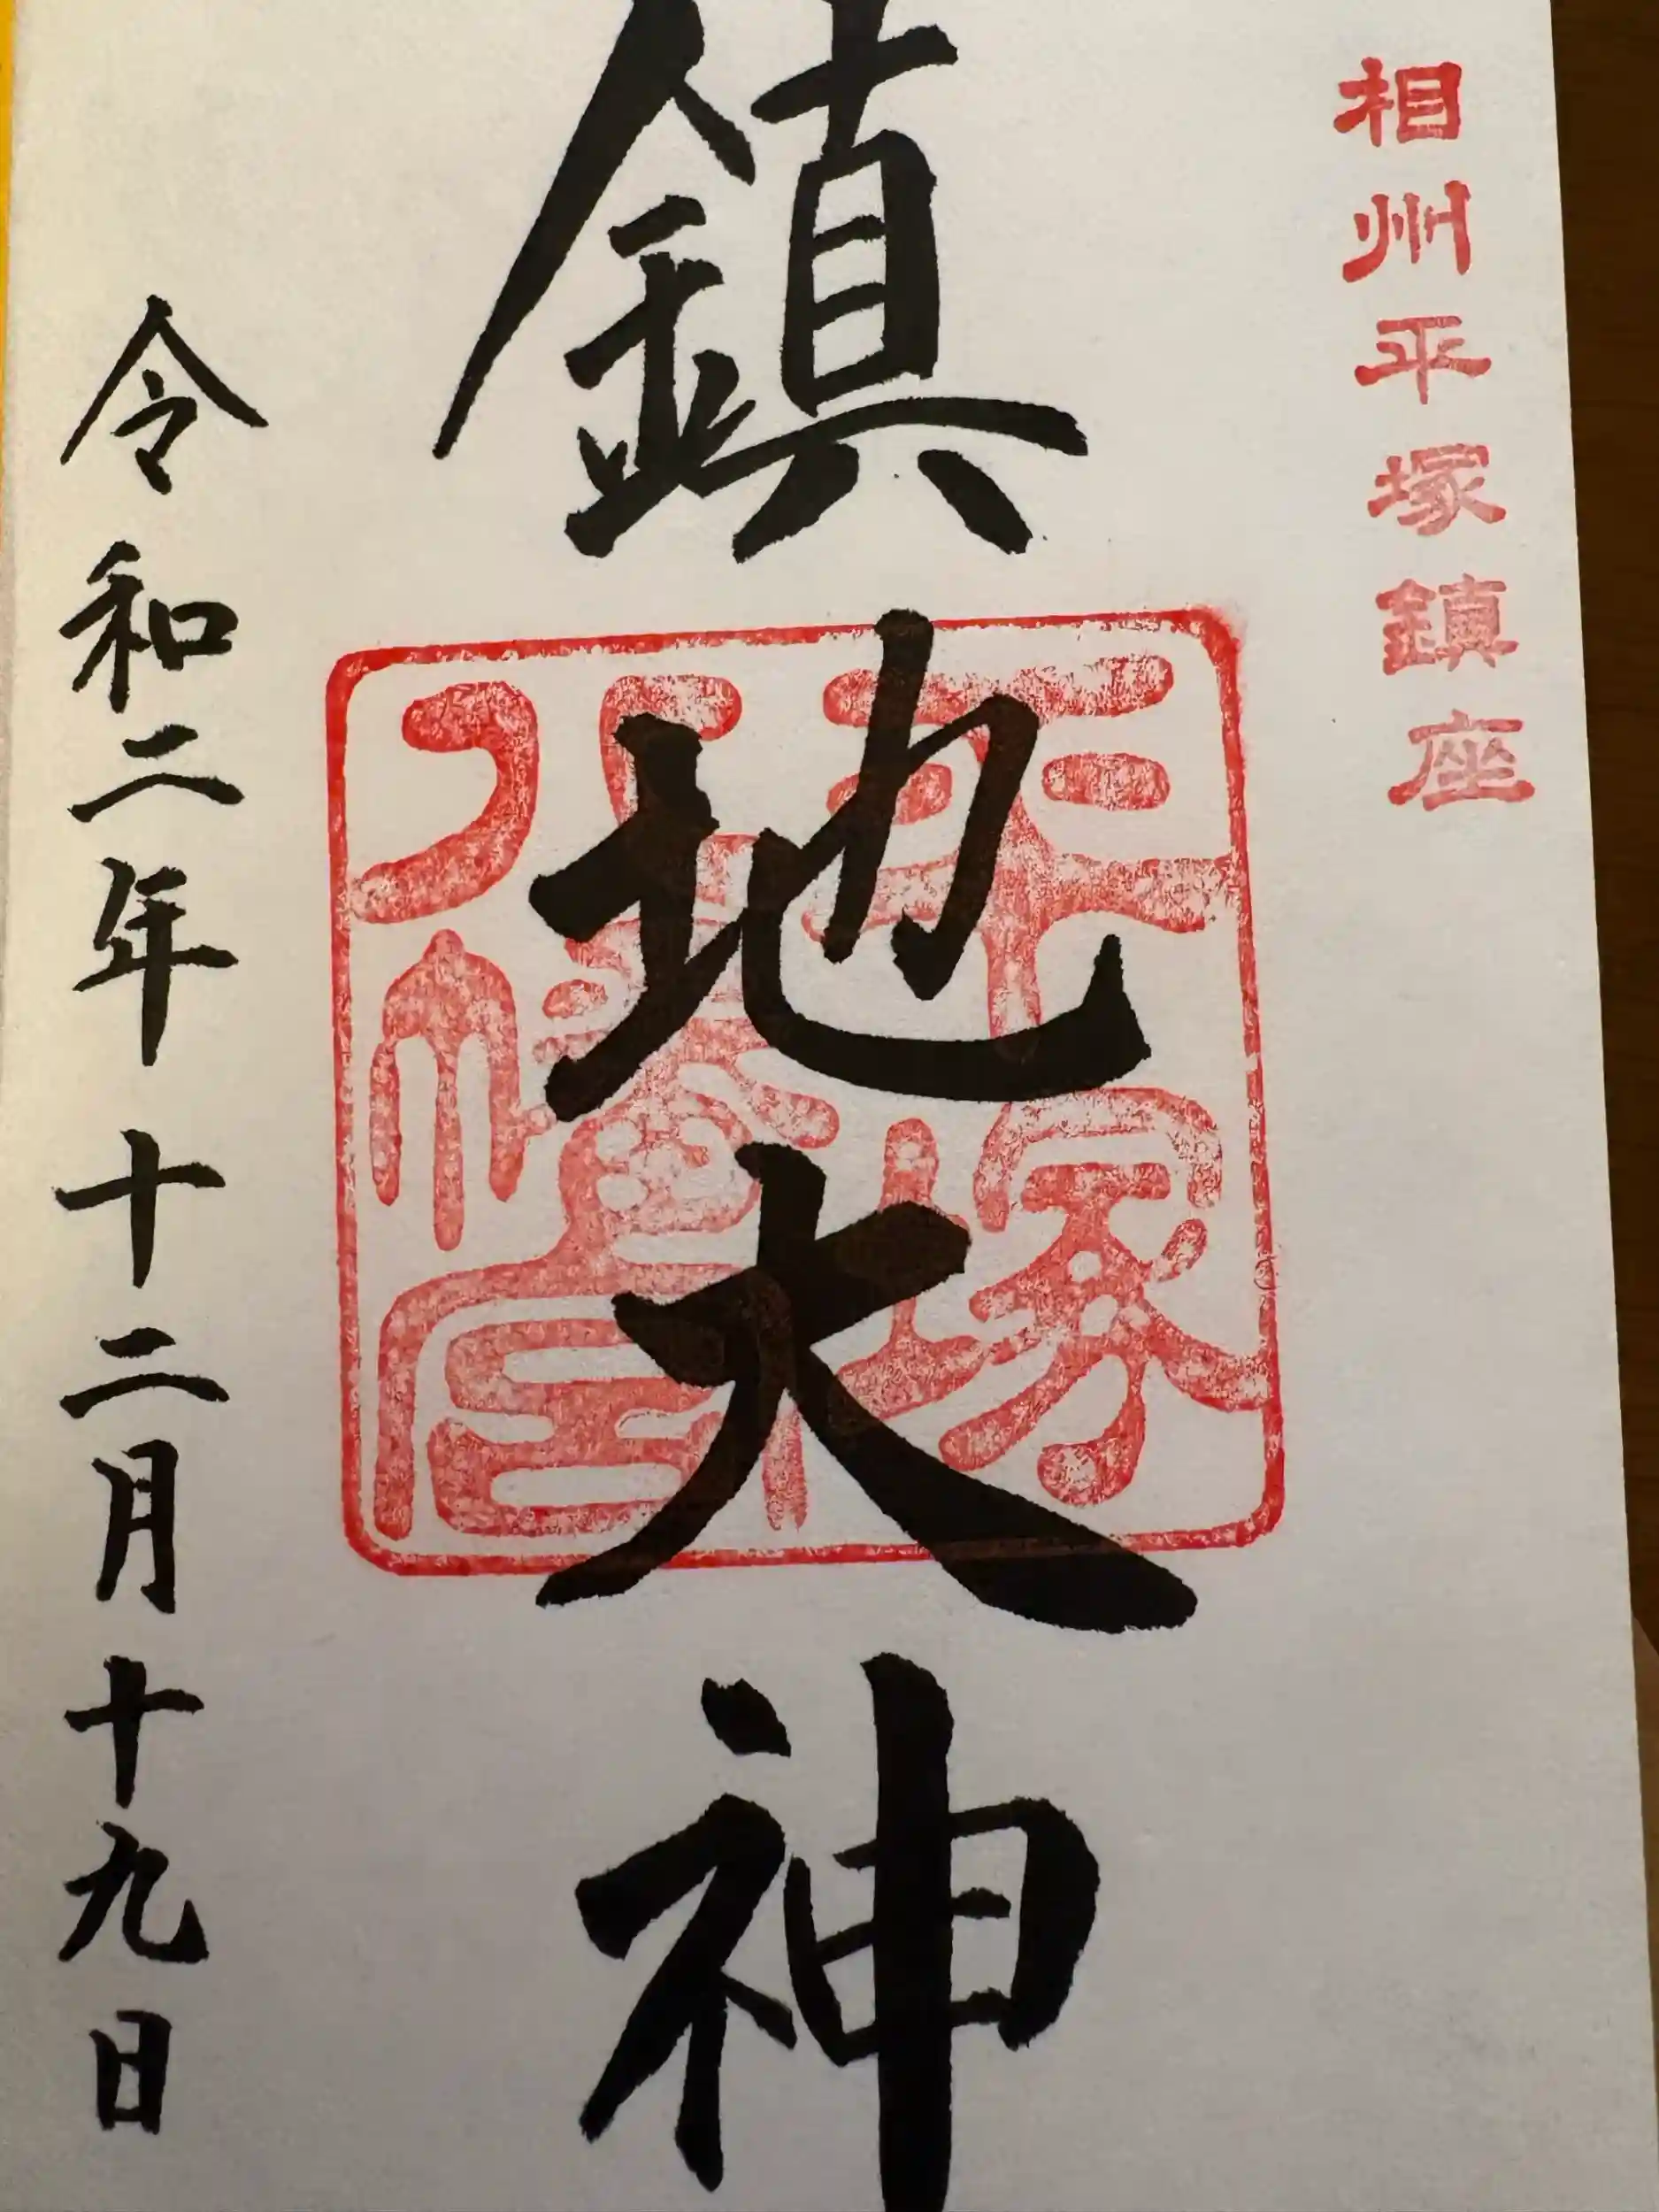 相州平塚鎮座
鎮地大神
平塚
八幡宮
令和二年十二月十九日